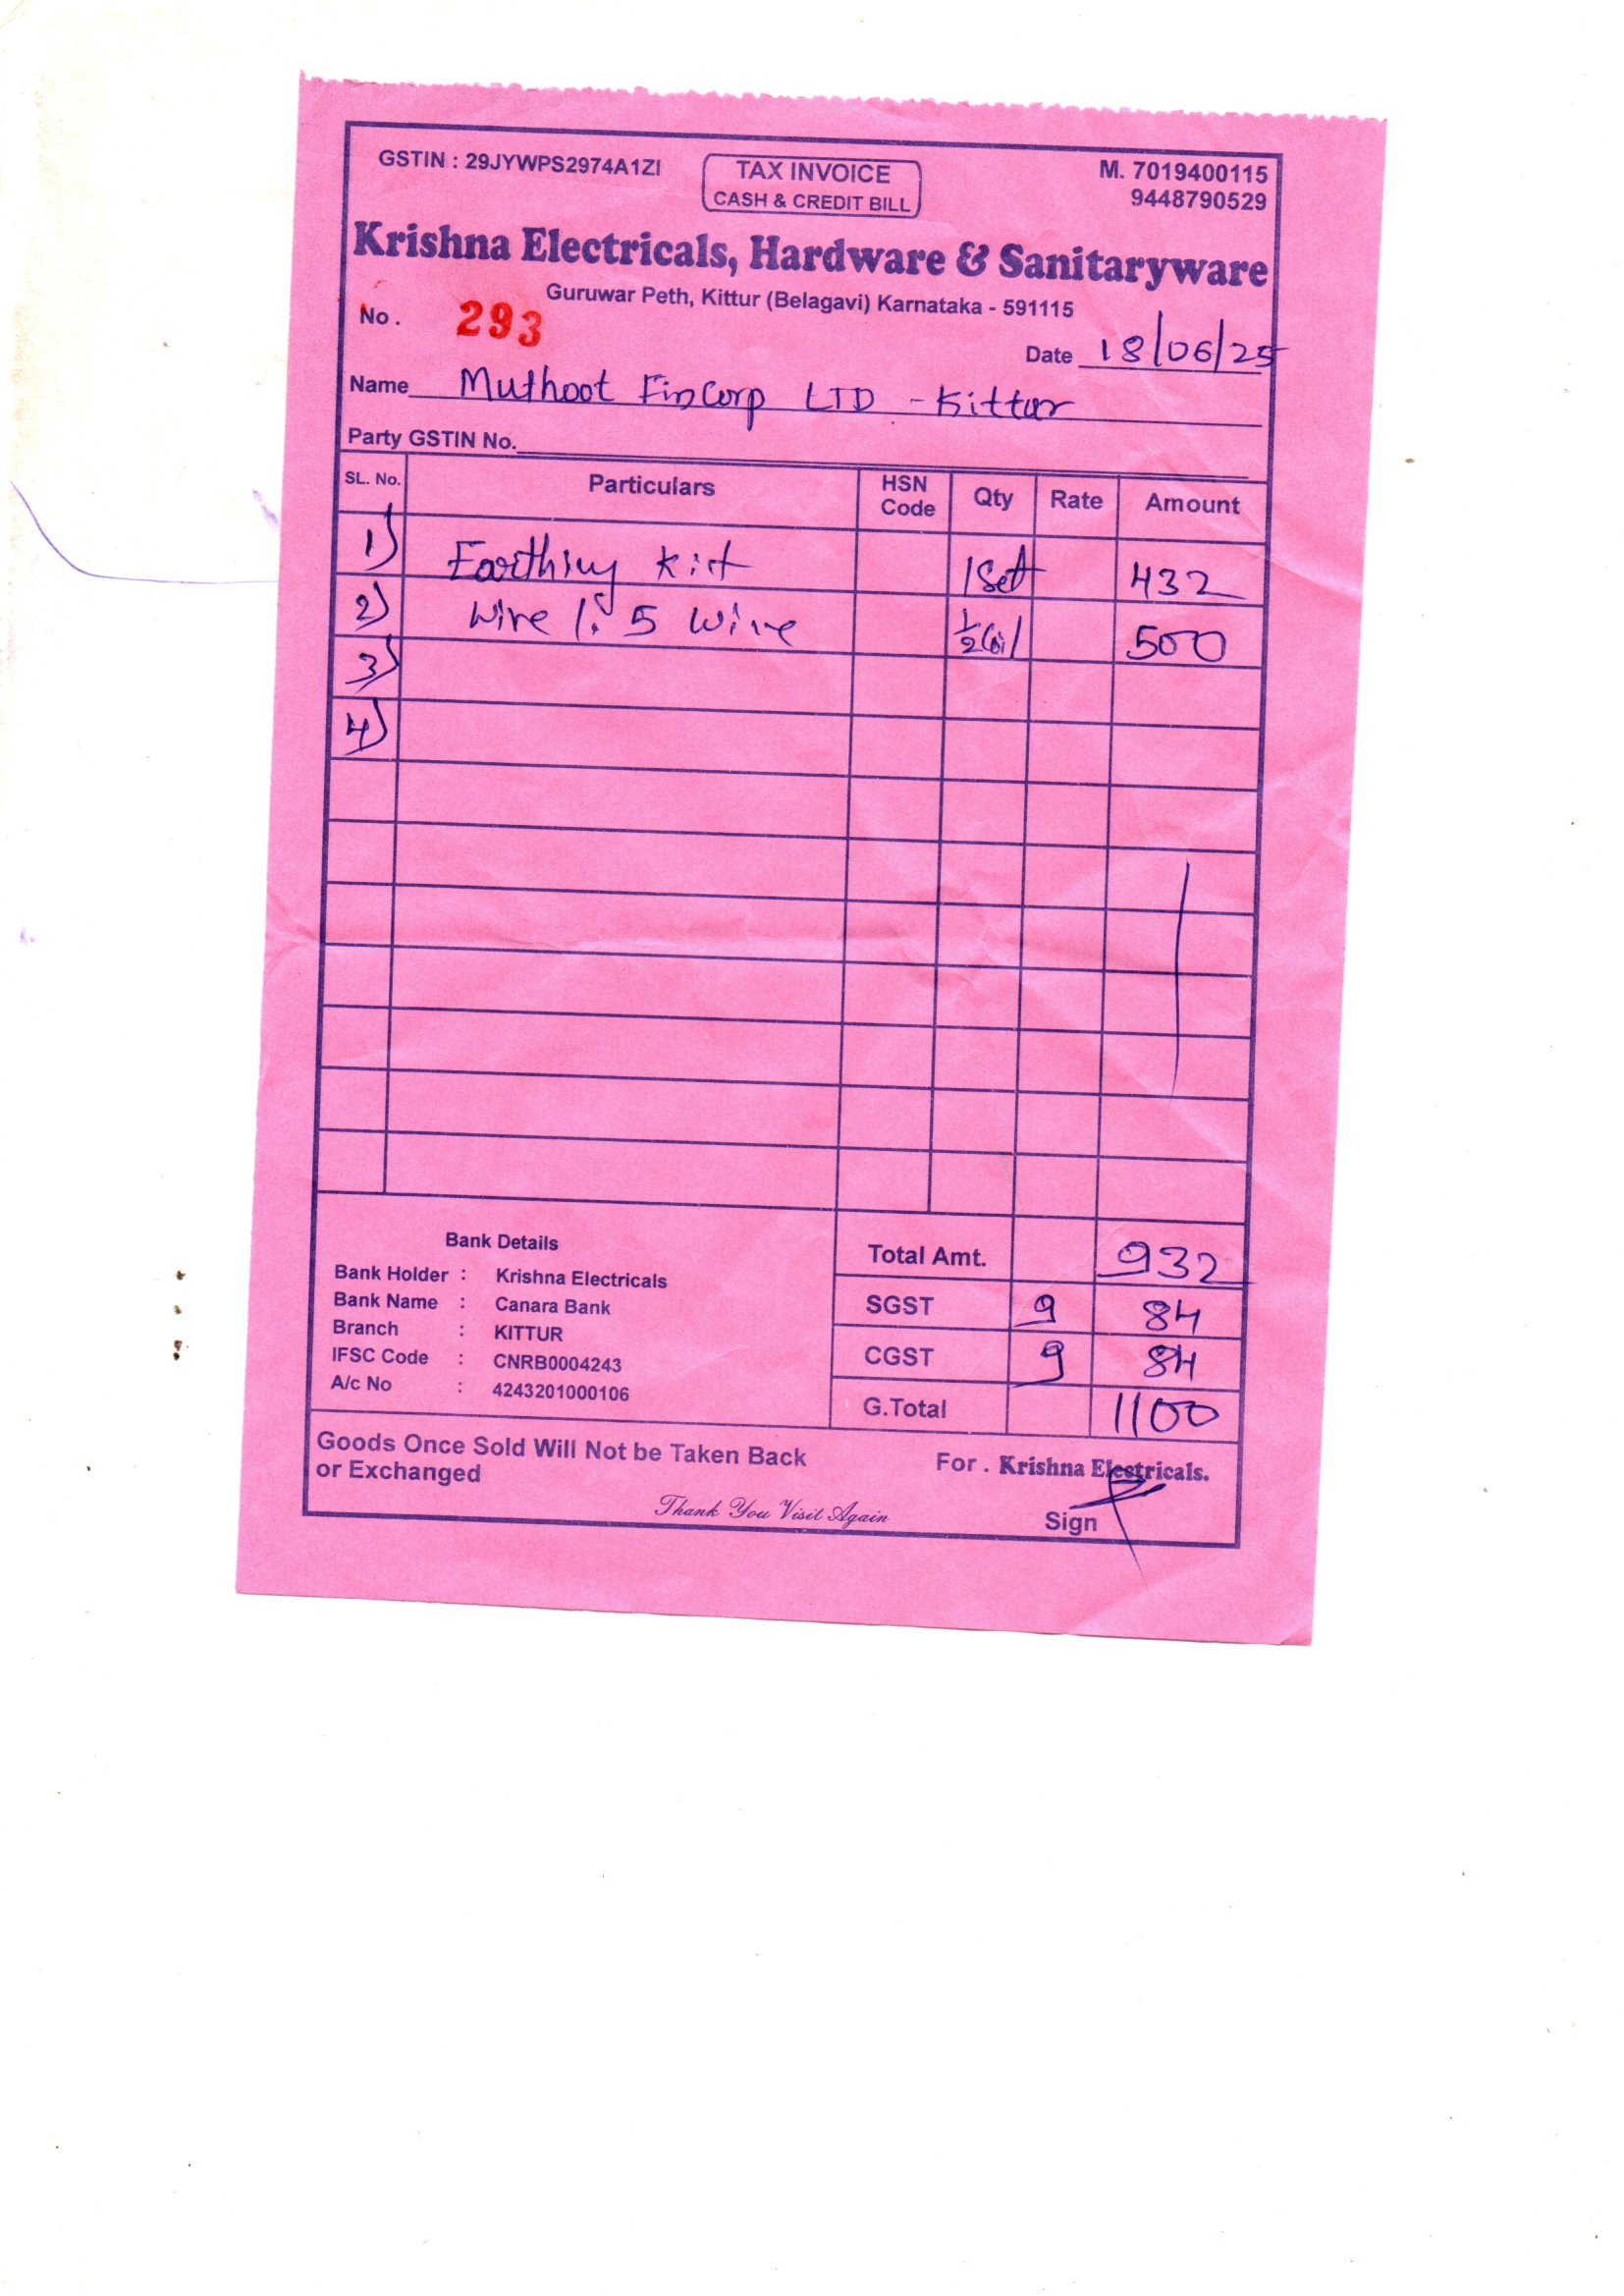 GSTIN : 29JYWPS2974A1ZI
TAX INVOICE
CASH & CREDIT BILL
M. 7019400115
9448790529
Krishna Electricals, Hardware & Sanitaryware
Guruwar Peth, Kittur (Belagavi) Karnataka - 591115
No. 293
Date 18/06/25
Name Muthoot FinCorp LTD - Kittur
Party GSTIN No.
SL. No. Particulars HSN Code Qty Rate Amount
1) Earthing Kit 1 Set 432
2) Wire 1.5 Wire 1/2 Coil 500
3)
4)
Bank Details
Bank Holder : Krishna Electricals
Bank Name : Canara Bank
Branch : KITTUR
IFSC Code : CNRB0004243
A/c No : 4243201000106
Total Amt. 932
SGST 9 84
CGST 9 84
G.Total 1100
Goods Once Sold Will Not be Taken Back
or Exchanged
For . Krishna Electricals.
Thank You Visit Again
Sign